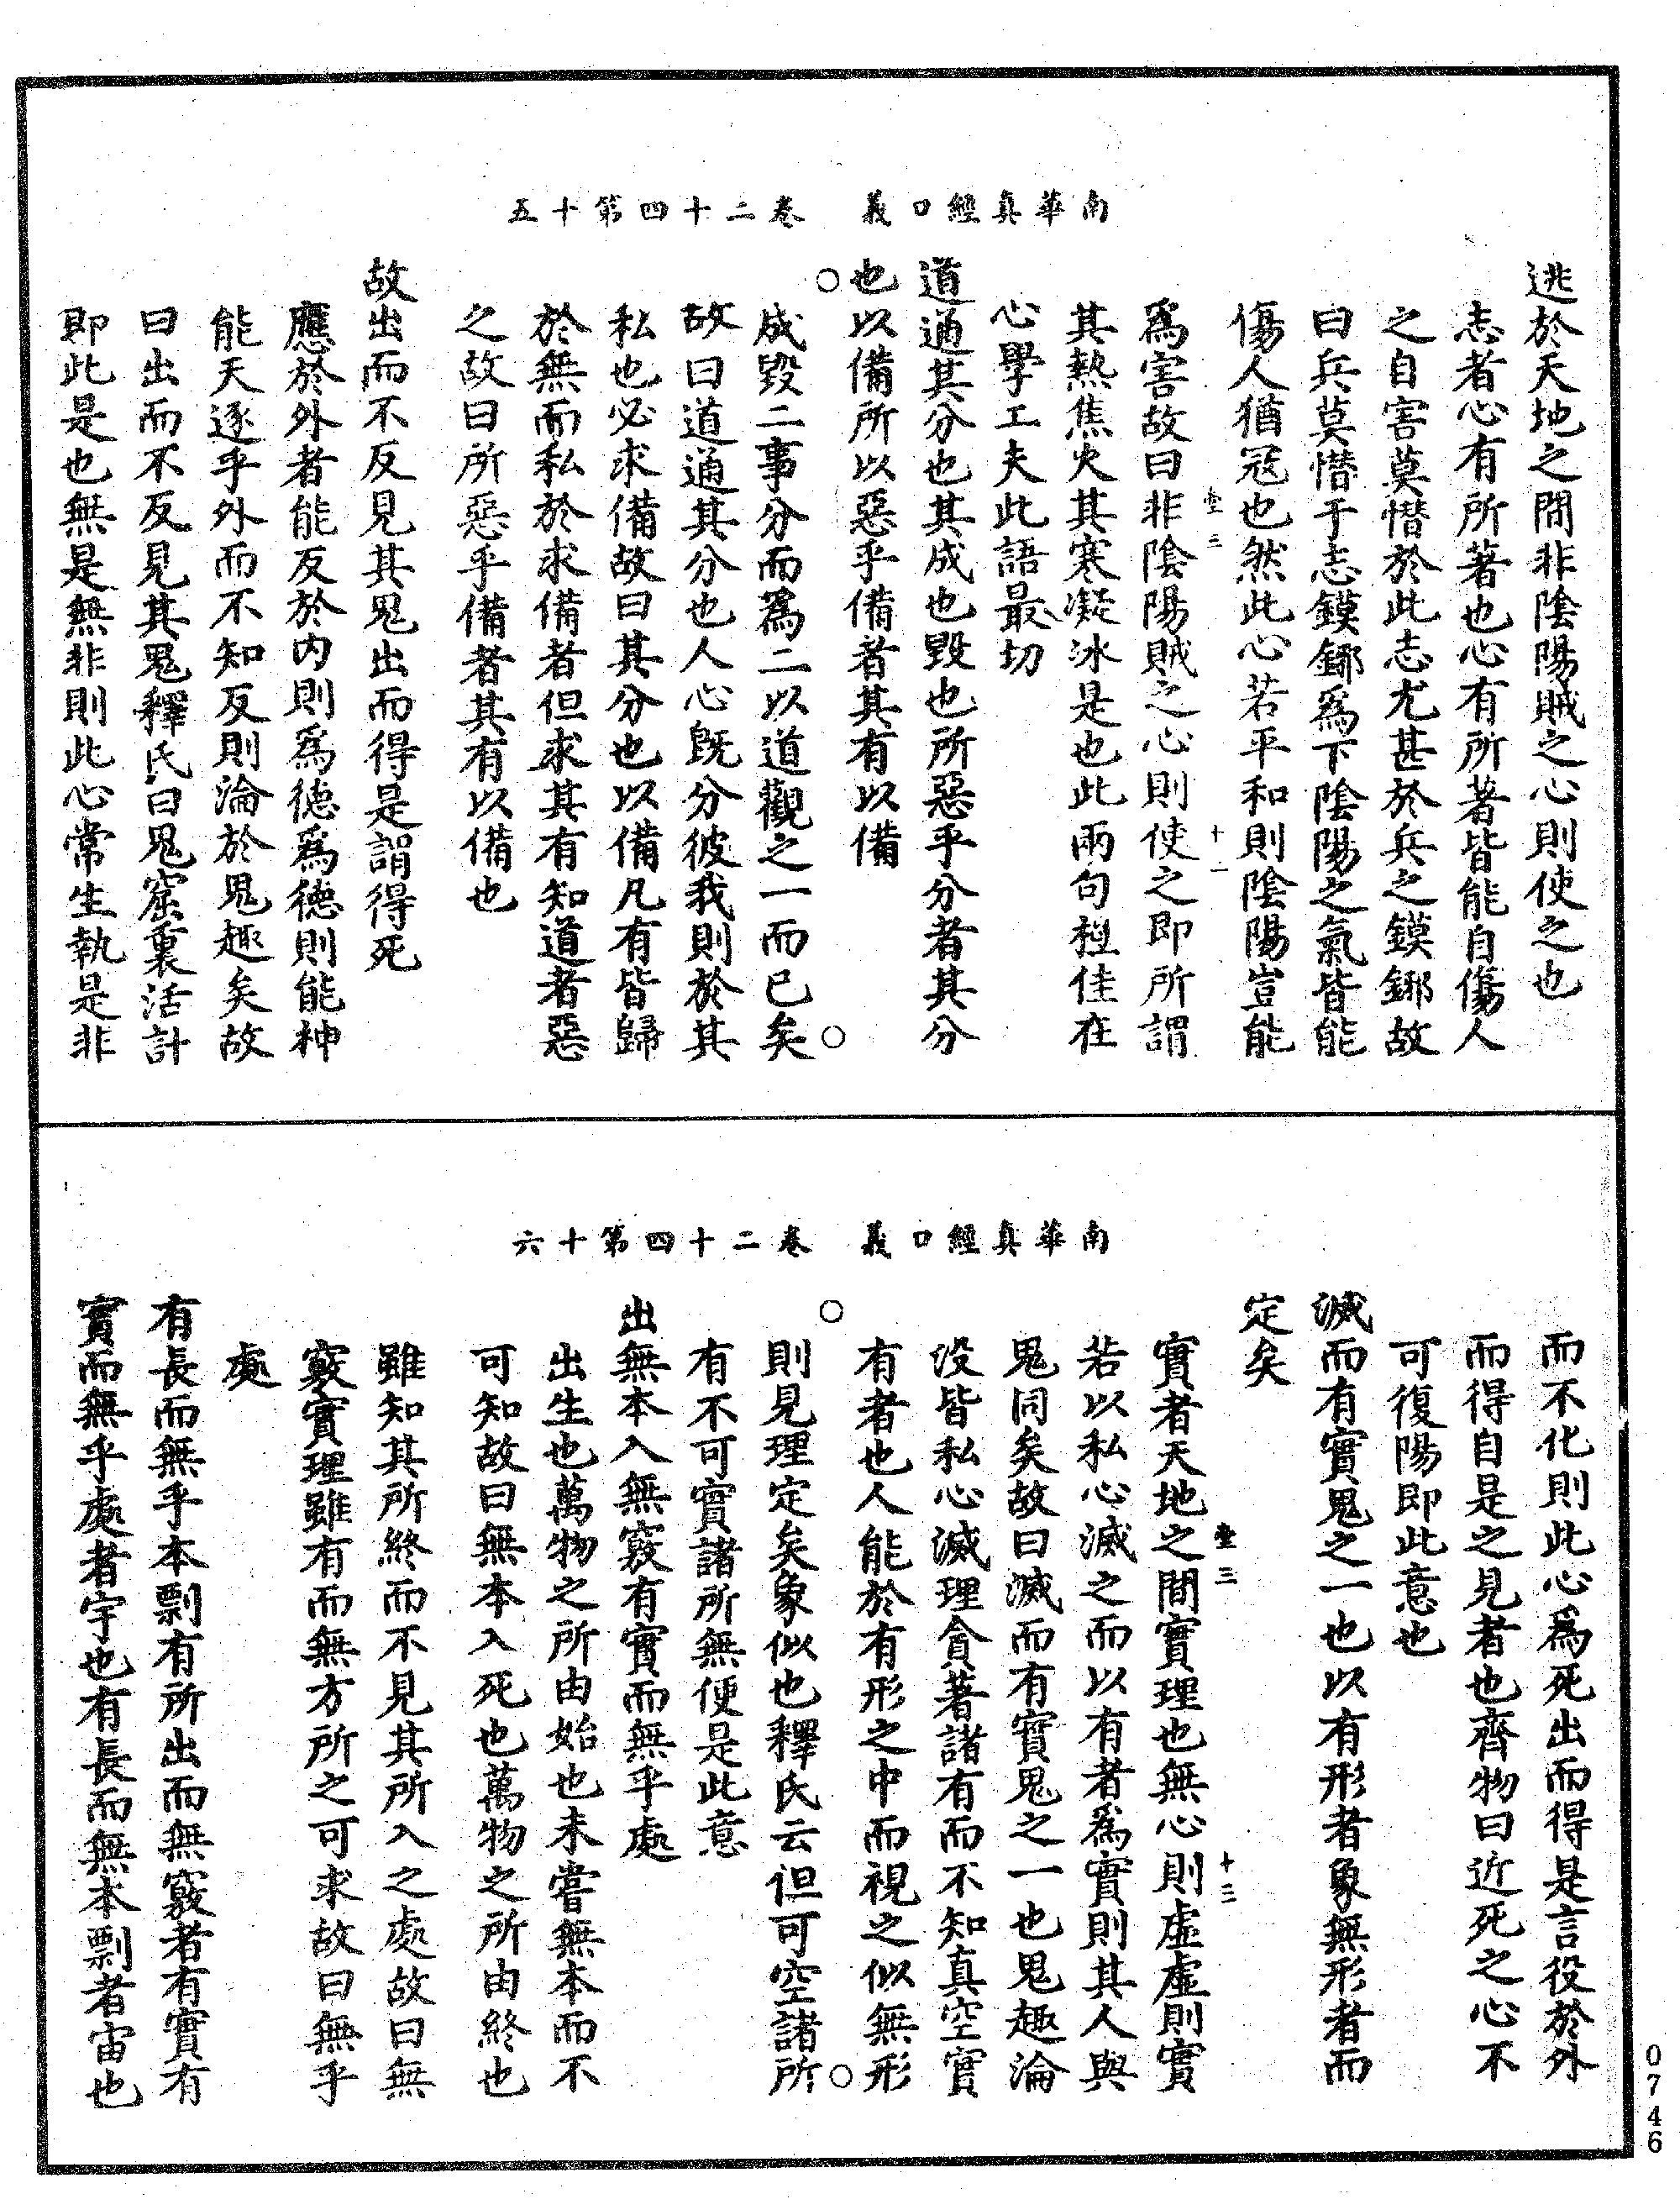 南華真經口義　卷二十四第十五
逃於天地之間非陰陽賊之心則使之也
志者心有所著也心有所著皆能自傷人
之自害莫憯於此志尤甚於兵之鏌鋣故
曰兵莫憯于志鏌鋣為下陰陽之氣皆能
傷人猶冦也然此心若平和則陰陽豈能
壹三　十二
為害故曰非陰陽賊之心則使之即所謂
其熱焦火其寒凝冰是也此兩句極佳在
心學工夫此語最切
道通其分也其成也毀也所惡乎分者其分
也以備所以惡乎備者其有以備
○　○
成毀二事分而為二以道觀之一而已矣
故曰道通其分也人心既分彼我則於其
私也必求備故曰其分也以備凡有皆歸
於無而私於求備者但求其有知道者惡
之故曰所惡乎備者其有以備也
故出而不反見其鬼出而得是謂得死
應於外者能反於内則為德為德則能神
能天逐乎外而不知反則淪於鬼趣矣故
曰出而不反見其鬼釋氏曰鬼窟裏活計
即此是也無是無非則此心常生執是非
南華真經口義　卷二十四第十六
而不化則此心為死出而得是言役於外
而得自是之見者也齊物曰近死之心不
可復陽即此意也
滅而有實鬼之一也以有形者象無形者而
定矣
壹三　十三
實者天地之間實理也無心則虛虛則實
若以私心滅之而以有者為實則其人與
鬼同矣故曰滅而有實鬼之一也鬼趣淪
没皆私心滅理貪著諸有而不知真空實
有者也人能於有形之中而視之似無形
○　○
則見理定矣象似也釋氏云但可空諸所
有不可實諸所無便是此意
出無本入無竅有實而無乎處
出生也萬物之所由始也未嘗無本而不
可知故曰無本入死也萬物之所由終也
雖知其所終而不見其所入之處故曰無
竅實理雖有而無方所之可求故曰無乎
處
有長而無乎本剽有所出而無竅者有實有
實而無乎處者宇也有長而無本剽者宙也
0746